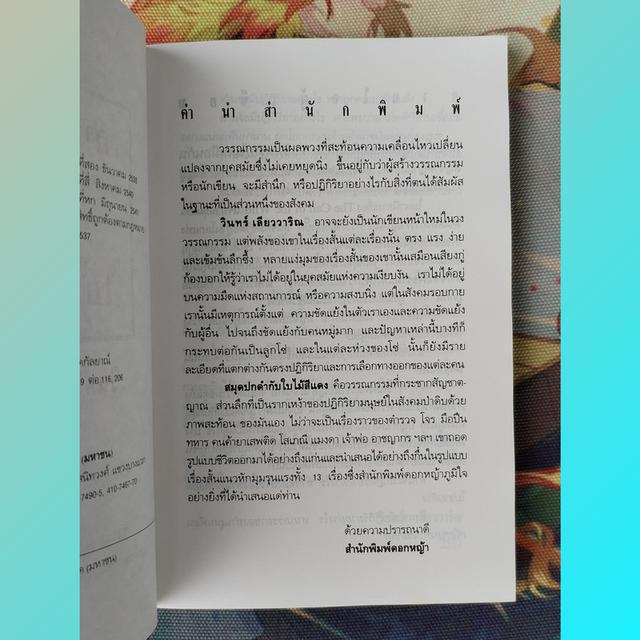 ที่สอง ธันวาคม 2538
ที่สี่ สิงหาคม 2540
ที่หก มิถุนายน 2541
สิทธิ์ถูกต้องตามกฎหมาย
537
กัลยาณ์
9 ต่อ 116, 206
(มหาชน)
สนิทวงศ์ แขวงบางแวก
-7490-5, 410-7467-70
ค (มหาชน)
คำนำสำนักพิมพ์
วรรณกรรมเป็นผลพวงที่สะท้อนความเคลื่อนไหวเปลี่ยน
แปลงจากยุคสมัยซึ่งไม่เคยหยุดนิ่ง ขึ้นอยู่กับว่าผู้สร้างวรรณกรรม
หรือนักเขียน จะมีสำนึก หรือปฏิกิริยาอย่างไรกับสิ่งที่ตนได้สัมผัส
ในฐานะที่เป็นส่วนหนึ่งของสังคม
วินทร์ เลียววาริณ อาจจะยังเป็นนักเขียนหน้าใหม่ในวง
วรรณกรรม แต่พลังของเขาในเรื่องสั้นแต่ละเรื่องนั้น ตรง แรง ง่าย
และเข้มข้นลึกซึ้ง หลายแง่มุมของเรื่องสั้นของเขานั้นเสมือนเสียงกู่
ก้องบอกให้รู้ว่าเราไม่ได้อยู่ในยุคสมัยแห่งความเงียบงัน เราไม่ได้อยู่
บนความมืดแห่งสถานการณ์ หรือความสงบนิ่ง แต่ในสังคมรอบกาย
เรานั้นมีเหตุการณ์ตั้งแต่ ความขัดแย้งในตัวเราเองและความขัดแย้ง
กับผู้อื่น ไปจนถึงขัดแย้งกับคนหมู่มาก และปัญหาเหล่านี้บางทีก็
กระทบต่อกันเป็นลูกโซ่ และในแต่ละห่วงของโซ่ นั้นก็ยังมีราย
ละเอียดที่แตกต่างกันตรงปฏิกิริยาและการเลือกทางออกของแต่ละคน
สมุดปกดำกับใบไม้สีแดง คือวรรณกรรมที่กระชากสัญชาต-
ญาณ ส่วนลึกที่เป็นรากเหง้าของปฏิกิริยามนุษย์ในสังคมป่าดิบด้วย
ภาพสะท้อน ของมันเอง ไม่ว่าจะเป็นเรื่องราวของตำรวจ โจร มือปืน
ทหาร คนค้ายาเสพติด โสเภณี แมงดา เจ้าพ่อ อาชญากร ฯลฯ เขาถอด
รูปแบบชีวิตออกมาได้อย่างถึงแก่นและนำเสนอได้อย่างถึงกึ๋นในรูปแบบ
เรื่องสั้นแนวหักมุมรุนแรงทั้ง 13 เรื่องซึ่งสำนักพิมพ์ดอกหญ้าภูมิใจ
อย่างยิ่งที่ได้นำเสนอแด่ท่าน
ด้วยความปรารถนาดี
สำนักพิมพ์ดอกหญ้า